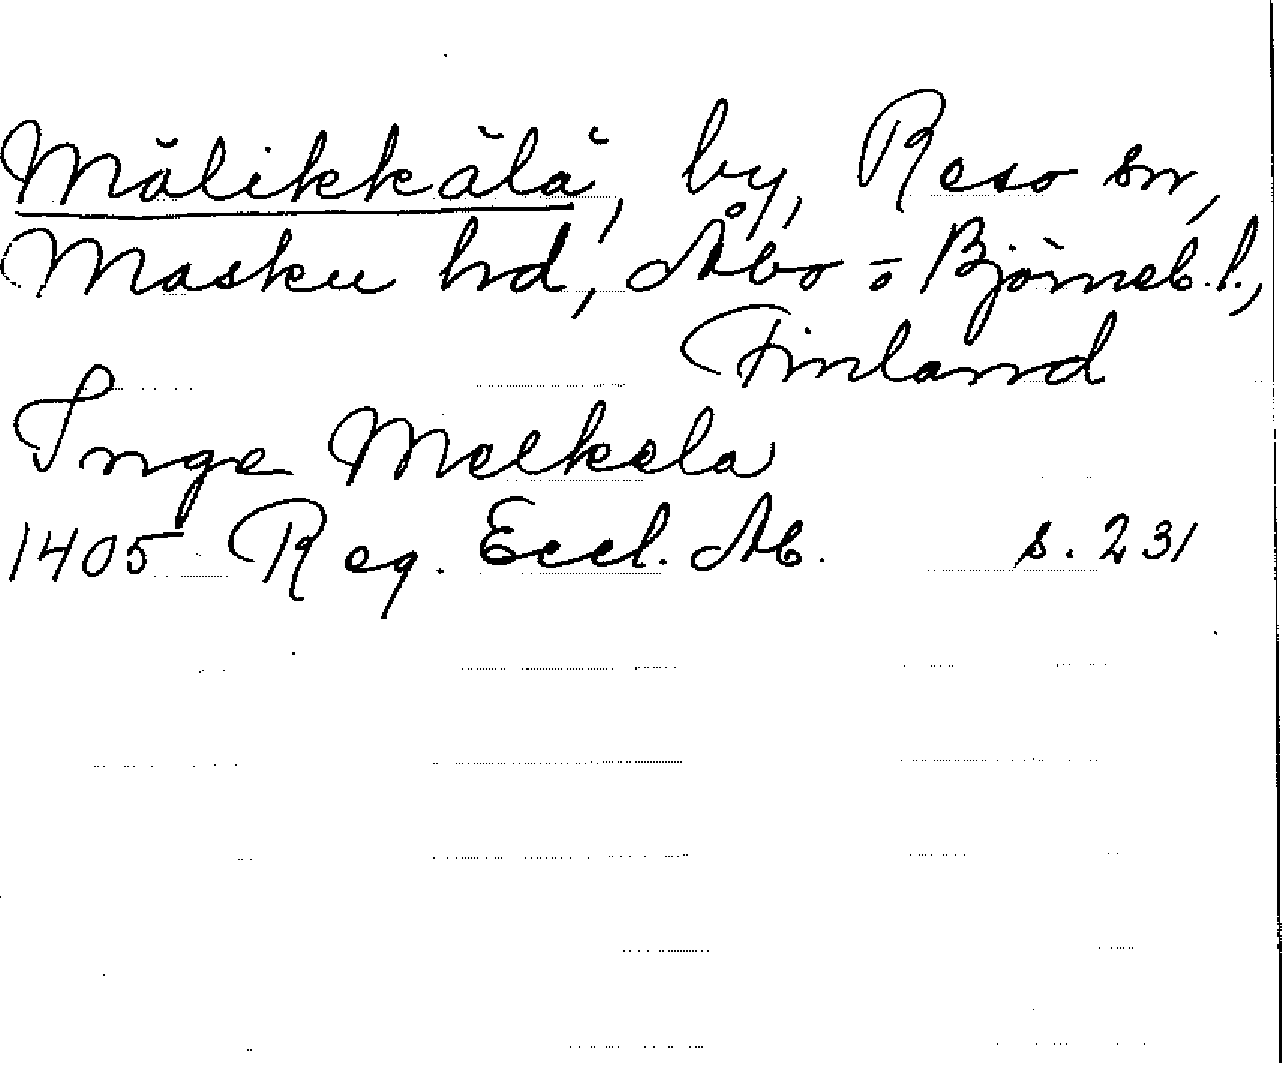 Mälikkälä, by, Reso sn,
Masku hd, Åbo- o Björneb. l.,
Finland
Inge Melkela
1405 Reg. Eccl. Ab. s. 231